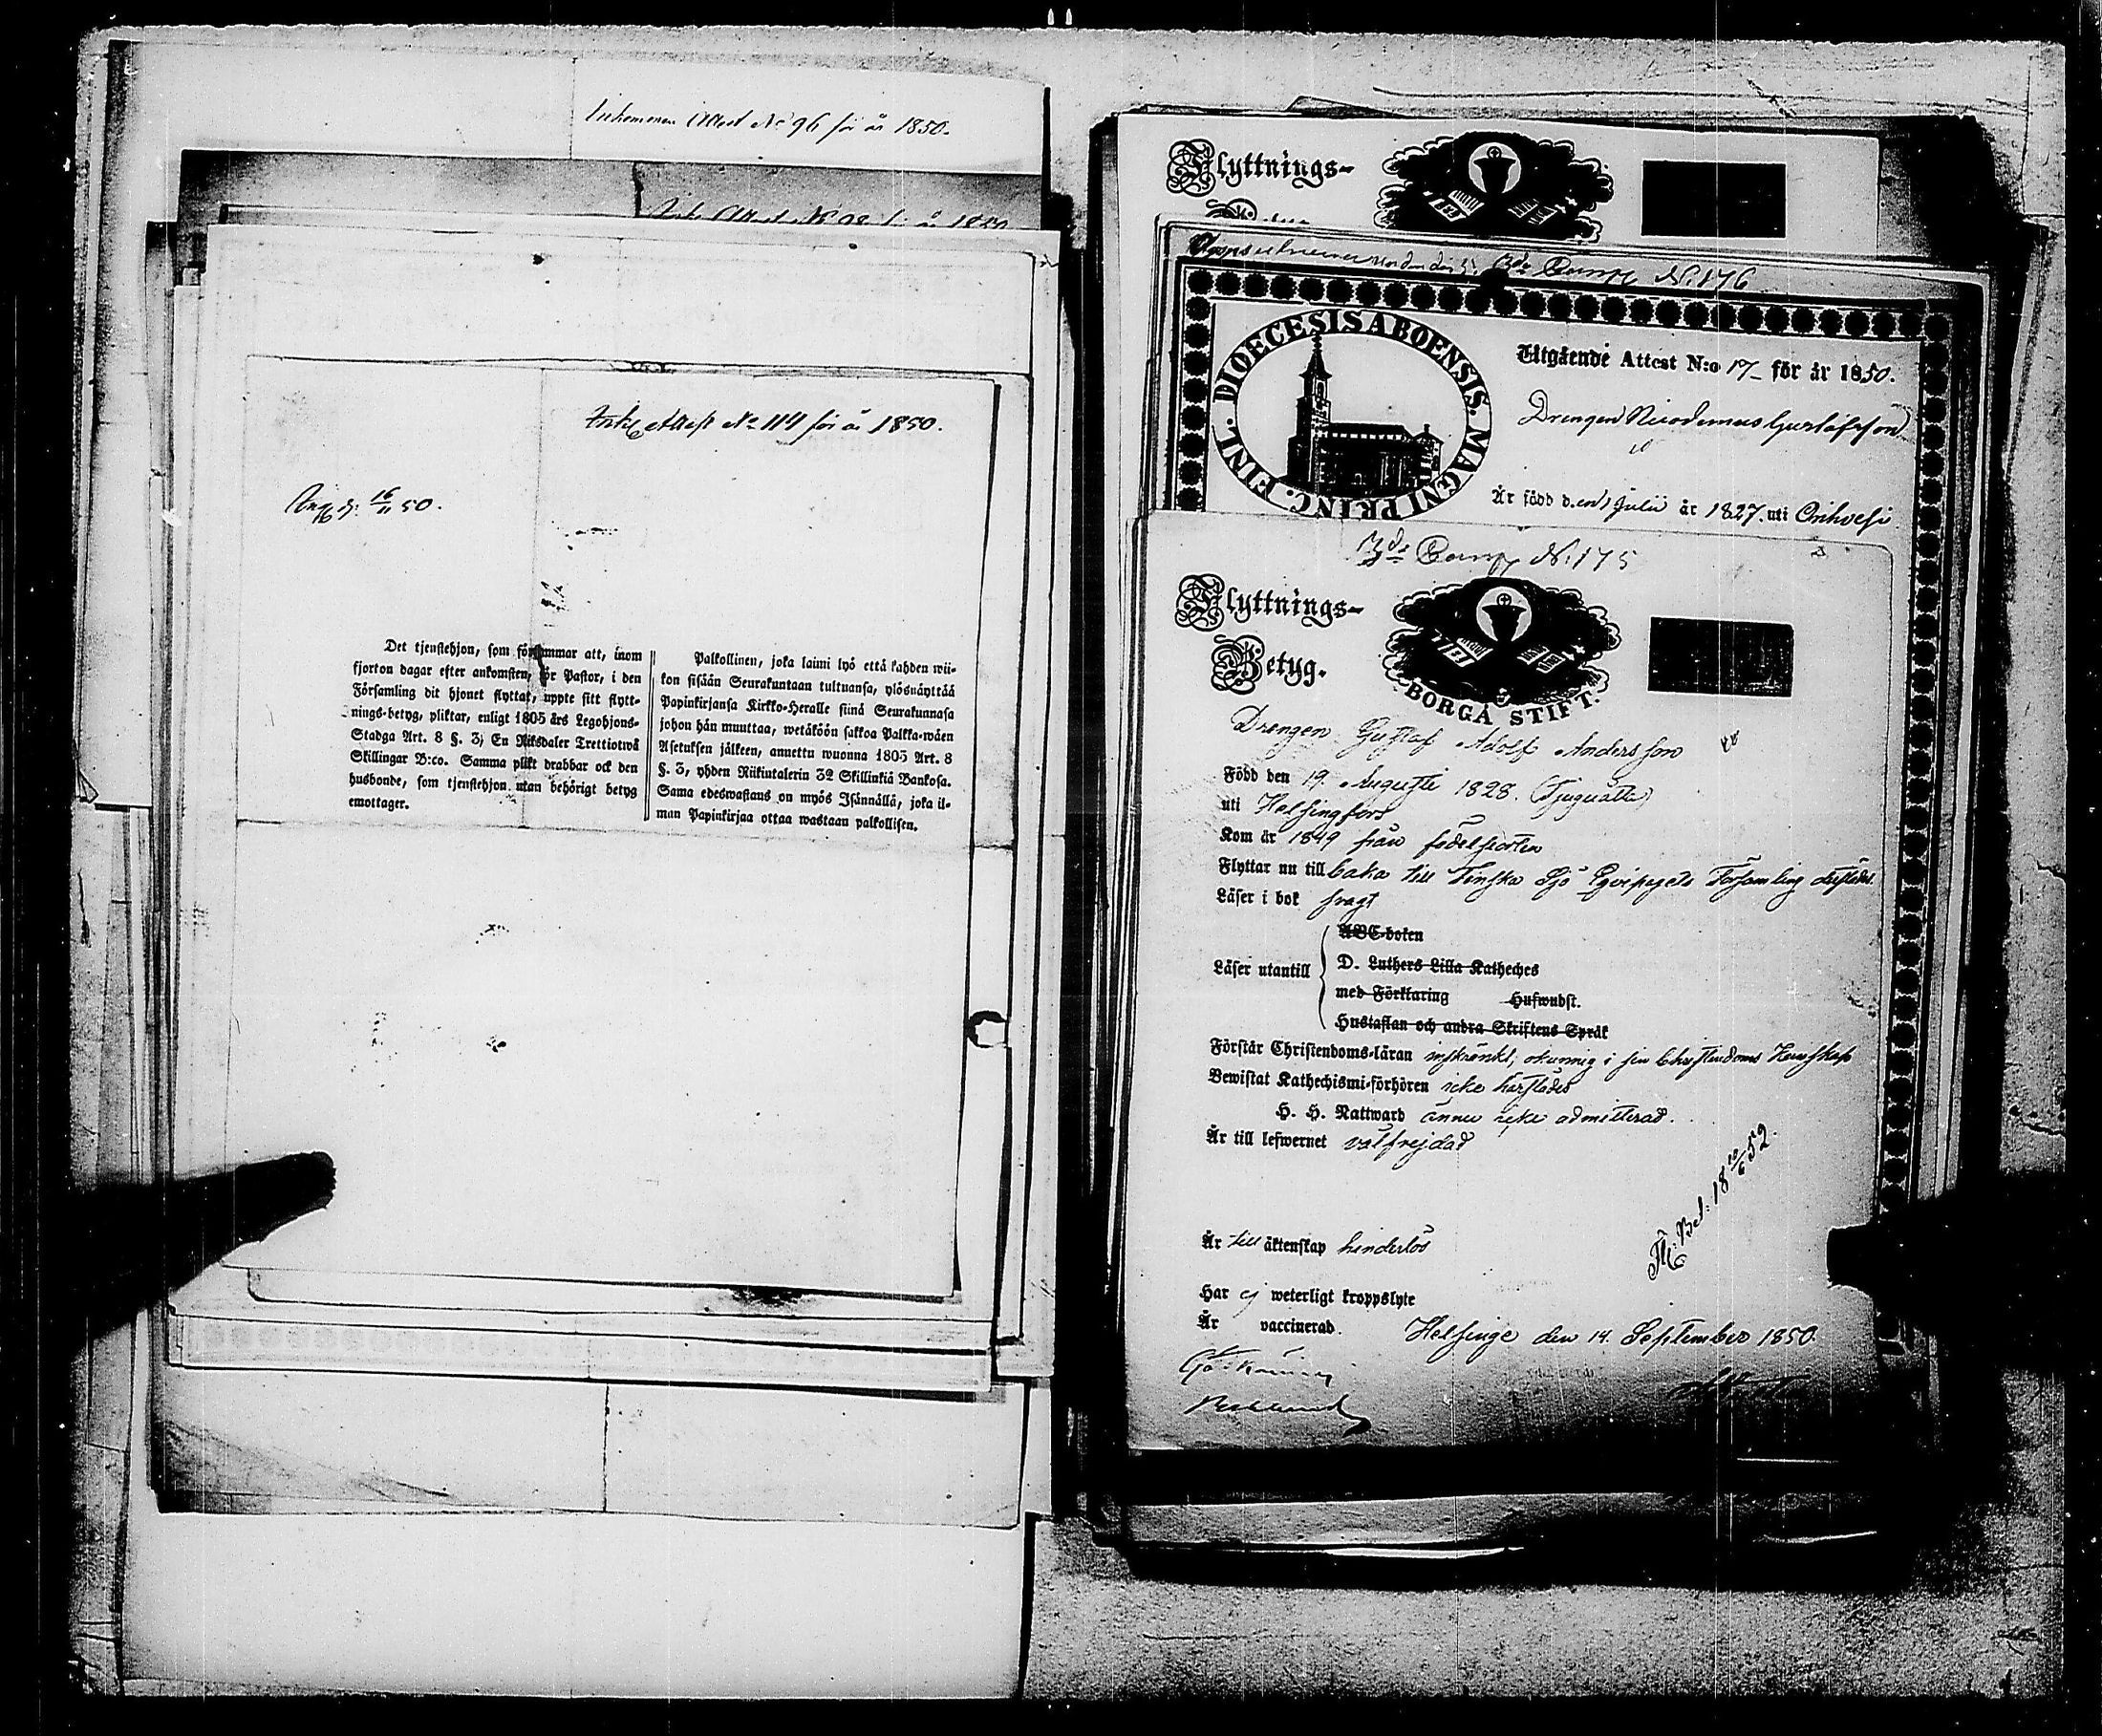 Inkommen Attest No 96 för år 1850.
Ink. Attest No 98 för år 1850
Ink. Attest No 114 för år 1850.
16/11 50.
Det tjenstehjon, som försummar att, inom
fjorton dagar efter ankomsten, för Pastor, i den
Församling dit hjonet flyttat, uppte sitt flytt-
nings-betyg, pliktar, enligt 1805 års Legohjons-
Stadga Art. 8 §. 3; En Riksdaler Trettiotwå
Skillingar B:co. Samma plikt drabbar ock den
husbonde, som tjenstehjon utan behörigt betyg
emottager.
Palkollinen, joka laimi lyö että kahden wii-
kon sisään Seurakuntaan tultuansa, ylösnäyttää
Papinkirjansa Kirkko-Heralle siinä Seurakunnasa
johon hän muuttaa, wetäköön sakkoa Palkka-wäen
Asetuksen jälkeen, annettu wuonna 1805 Art. 8
§. 3, yhden Riikintalerin 32 Skillinkiä Bankosa.
Sama edeswastaus on myös Isännällä, joka il-
man Papinkirjaa ottaa wastaan palkollisen.
Flyttnings-
3de Comp No 176
DIOECESIS ABOENSIS. MAGNI PRINC. FINL.
Utgående Attest N:o 17 för år 1850.
Drengen Nicodemus Gustafsson
Är född den 1 Julii år 1827. uti Orihvesi
3de Comp No 175
Flyttnings-
Betyg.
BORGÅ STIFT.
Drengen Gustaf Adolf Andersson
Född den 19 Augusti 1828. (Tjuguåtta)
uti Helsingfors
Kom år 1849 från födelseorten
Flyttar nu tillbaka till Finska Sjö Eqvipagets Församling derstädes.
Läser i bok svagt
Läser utantill
ABC-boken
D. Luthers Lilla Katheches
med Förklaring Hufwudst.
Hustaflan och andra Skriftens Språk
Förstår Christendoms-läran inskränkt; okunnig i sin Christendoms Kunskap
Bewistat Kathechismi-förhören icke härstädes
H. H. Nattward ännu icke admitterad.
Är till lefwernet välfrejdad
Är till äktenskap hinderlös
Har ej weterligt kroppslyte
Är vaccinerad.
Helsinge den 14. September 1850.